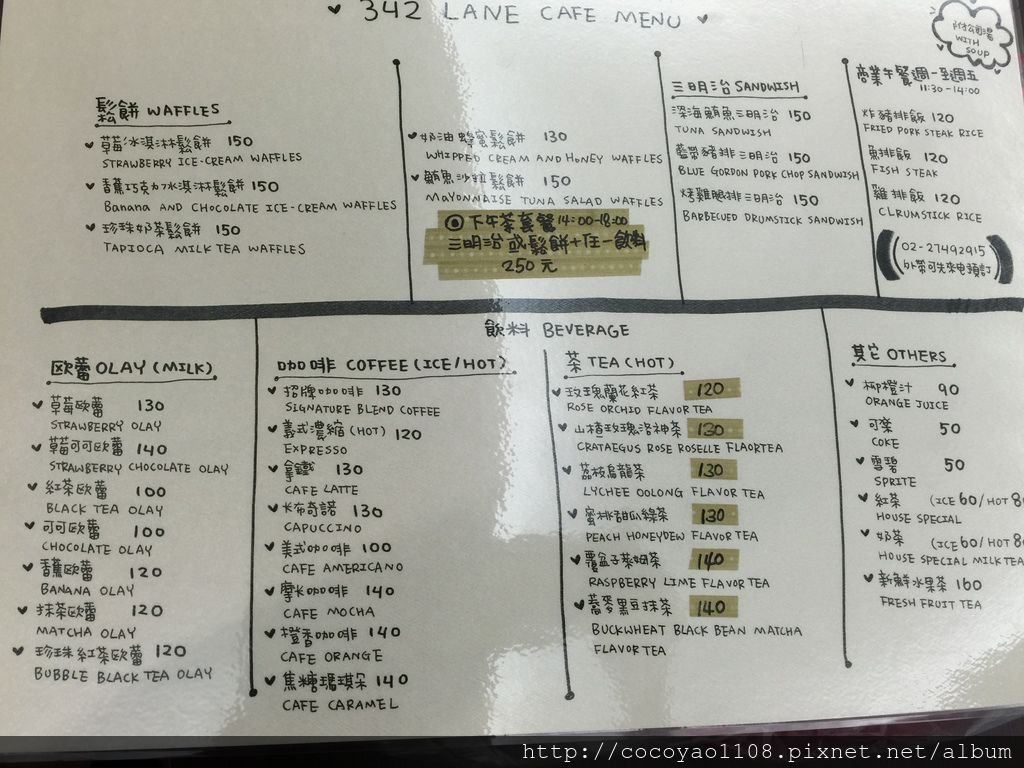 342 LANE CAFE MENU
附公司湯
WITH
SOUP
鬆餅 WAFFLES
草莓冰淇淋鬆餅 150
STRAWBERRY ICE-CREAM WAFFLES
香蕉巧克力冰淇淋鬆餅 150
Banana AND CHOCOLATE ICE-CREAM WAFFLES
珍珠奶茶鬆餅 150
TAPIOCA MILK TEA WAFFLES
奶油蜂蜜鬆餅 130
WHIPPED CREAM AND HONEY WAFFLES
鮪魚沙拉鬆餅 150
MAYONNAISE TUNA SALAD WAFFLES
下午茶套餐 14:00-18:00
三明治 或 鬆餅+任一飲料
250元
三明治 SANDWISH
深海鮪魚三明治 150
TUNA SANDWISH
藍帶豬排三明治 150
BLUE GORDON PORK CHOP SANDWISH
烤雞腿排三明治 150
BARBECUED DRUMSTICK SANDWISH
商業午餐週一至週五
11:30-14:00
炸豬排飯 120
FRIED PORK STEAK RICE
魚排飯 120
FISH STEAK
雞排飯 120
CLRUMSTICK RICE
02-27492915
外帶可先來电預訂
飲料 BEVERAGE
欧蕾 OLAY (MILK)
草莓欧蕾 130
STRAWBERRY OLAY
草莓可可欧蕾 140
STRAWBERRY CHOCOLATE OLAY
紅茶欧蕾 100
BLACK TEA OLAY
可可欧蕾 100
CHOCOLATE OLAY
香蕉欧蕾 120
BANANA OLAY
抹茶欧蕾 120
MATCHA OLAY
珍珠紅茶欧蕾 120
BUBBLE BLACK TEA OLAY
咖啡 COFFEE (ICE/HOT)
招牌咖啡 130
SIGNATURE BLEND COFFEE
義式濃縮 (HOT) 120
EXPRESSO
拿鐵 130
CAFE LATTE
卡布奇諾 130
CAPUCCINO
美式咖啡 100
CAFE AMERICANO
摩卡咖啡 140
CAFE MOCHA
橙香咖啡 140
CAFE ORANGE
焦糖瑪琪朵 140
CAFE CARAMEL
茶 TEA (HOT)
玫瑰蘭花紅茶 120
ROSE ORCHID FLAVOR TEA
山楂玫瑰洛神茶 130
CRATAEGUS ROSE ROSELLE FLAORTEA
荔枝烏龍茶 130
LYCHEE OOLONG FLAVOR TEA
蜜桃甜瓜綠茶 130
PEACH HONEYDEW FLAVOR TEA
覆盆子萊姆茶 140
RASPBERRY LIME FLAVOR TEA
蕎麥黑豆抹茶 140
BUCKWHEAT BLACK BEAN MATCHA
FLAVOR TEA
其它 OTHERS
柳橙汁 90
ORANGE JUICE
可樂 50
COKE
雪碧 50
SPRITE
紅茶 (ICE 60/HOT 8
HOUSE SPECIAL
奶茶 (ICE 60/HOT 8
HOUSE SPECIAL MILK TEA
新鮮水果茶 160
FRESH FRUIT TEA
http://cocoyao1108.pixnet.net/album